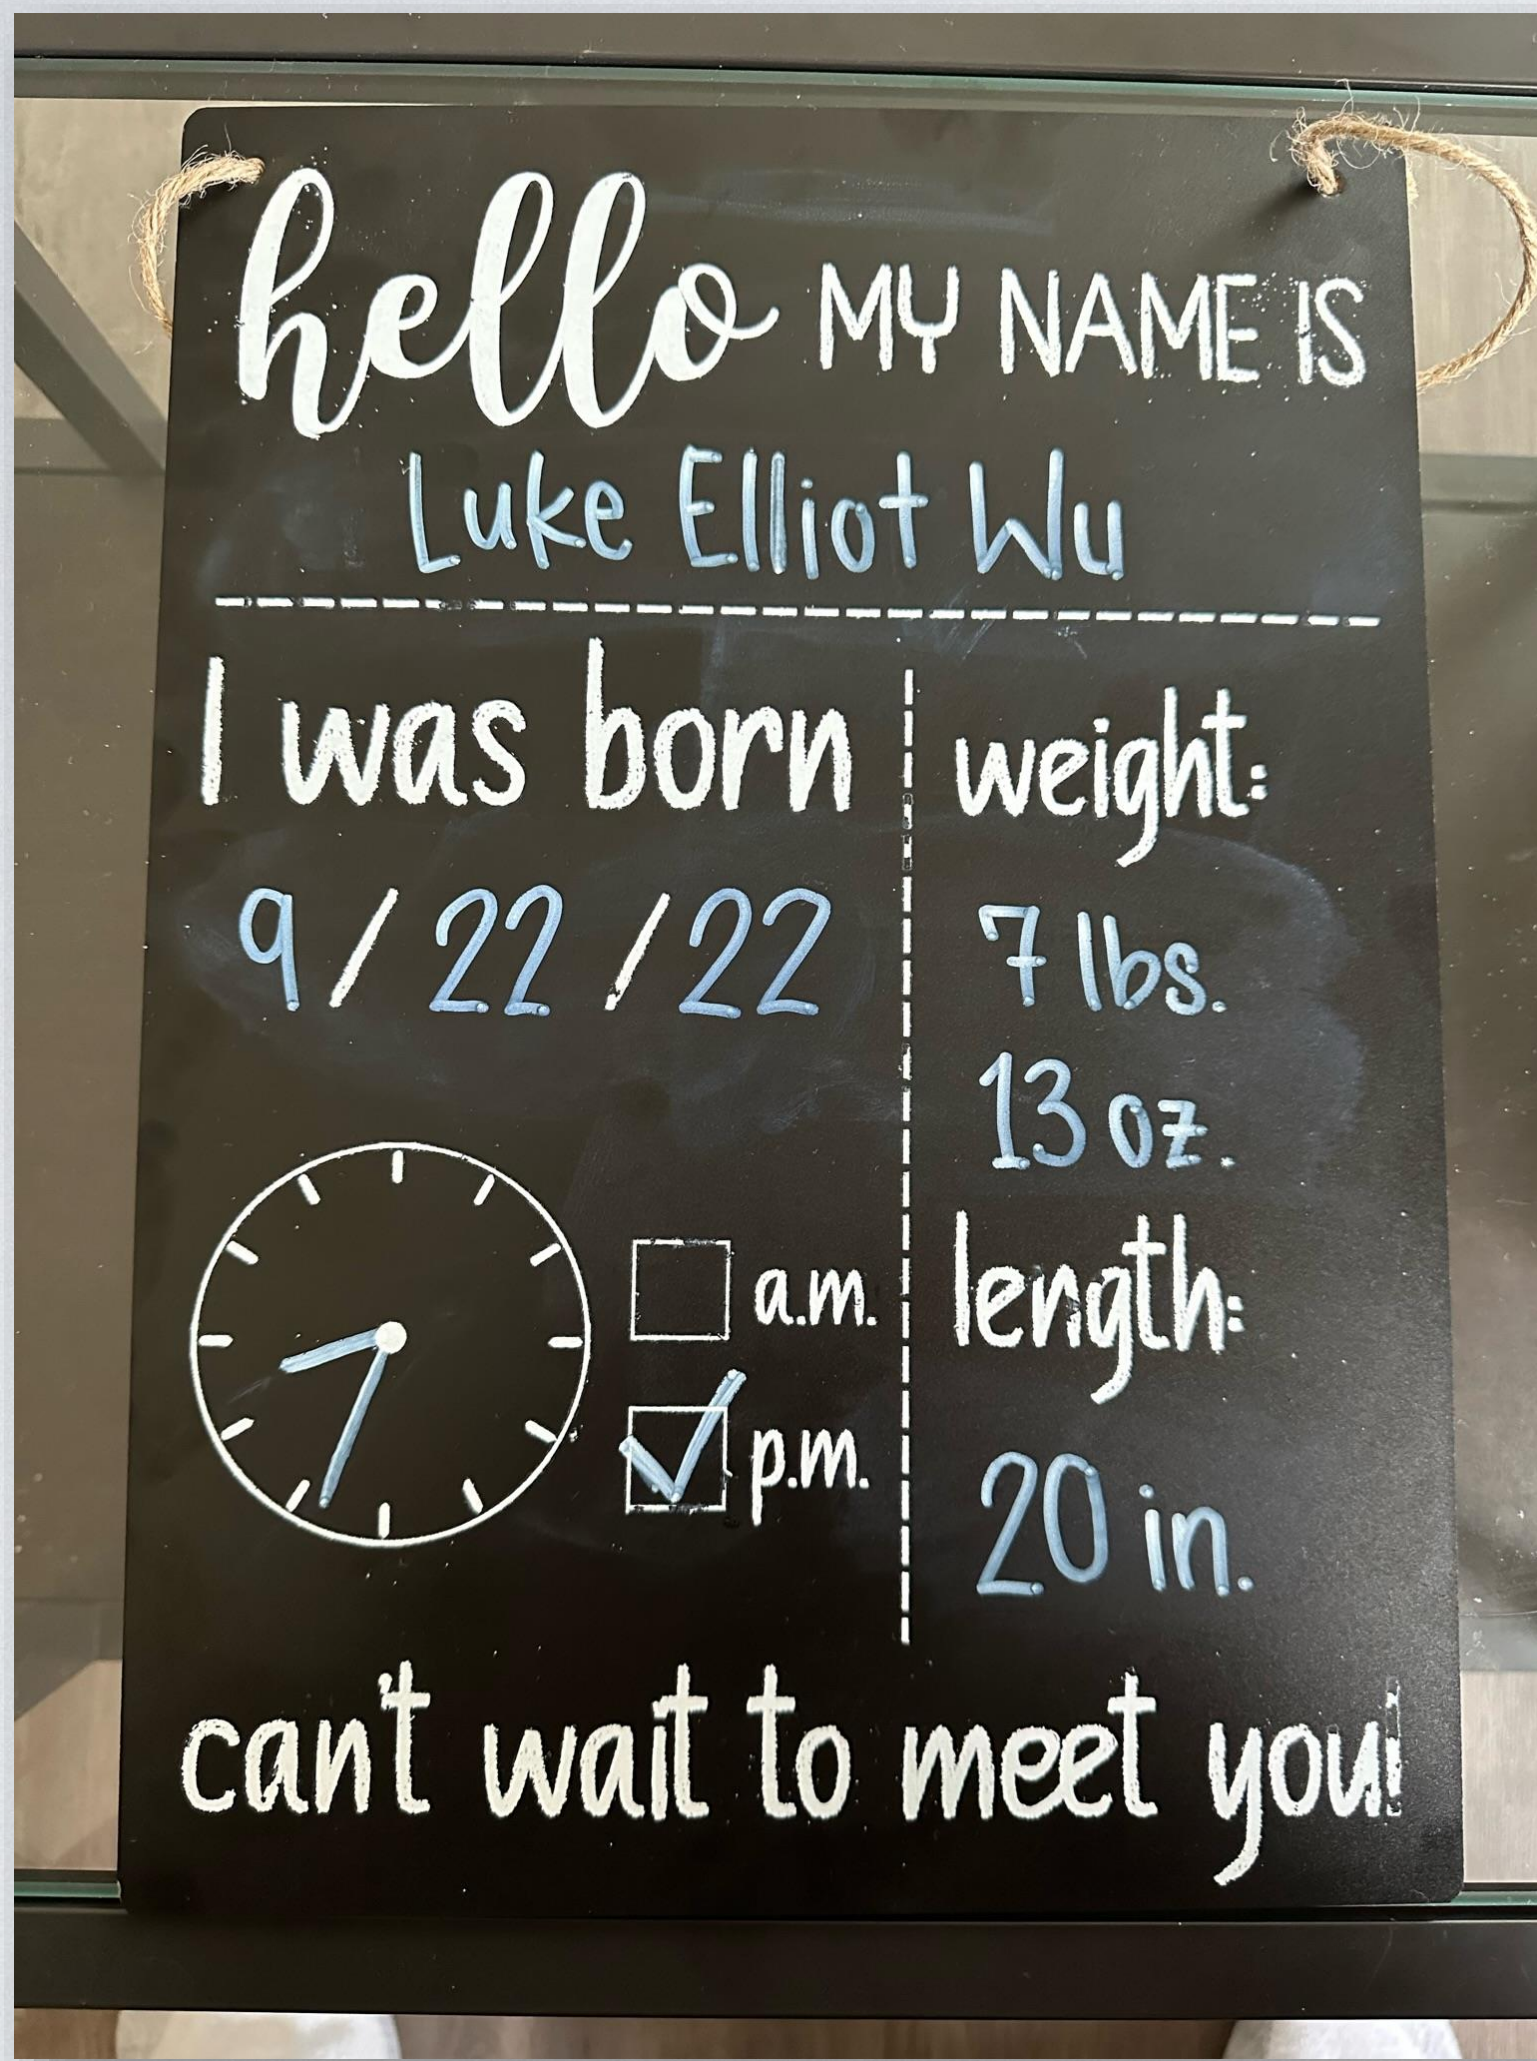 hello MY NAME IS
Luke Elliot Wu
I was born
9/22/22
a.m.
p.m.
weight:
7 lbs.
13 oz.
length:
20 in.
can't wait to meet you!